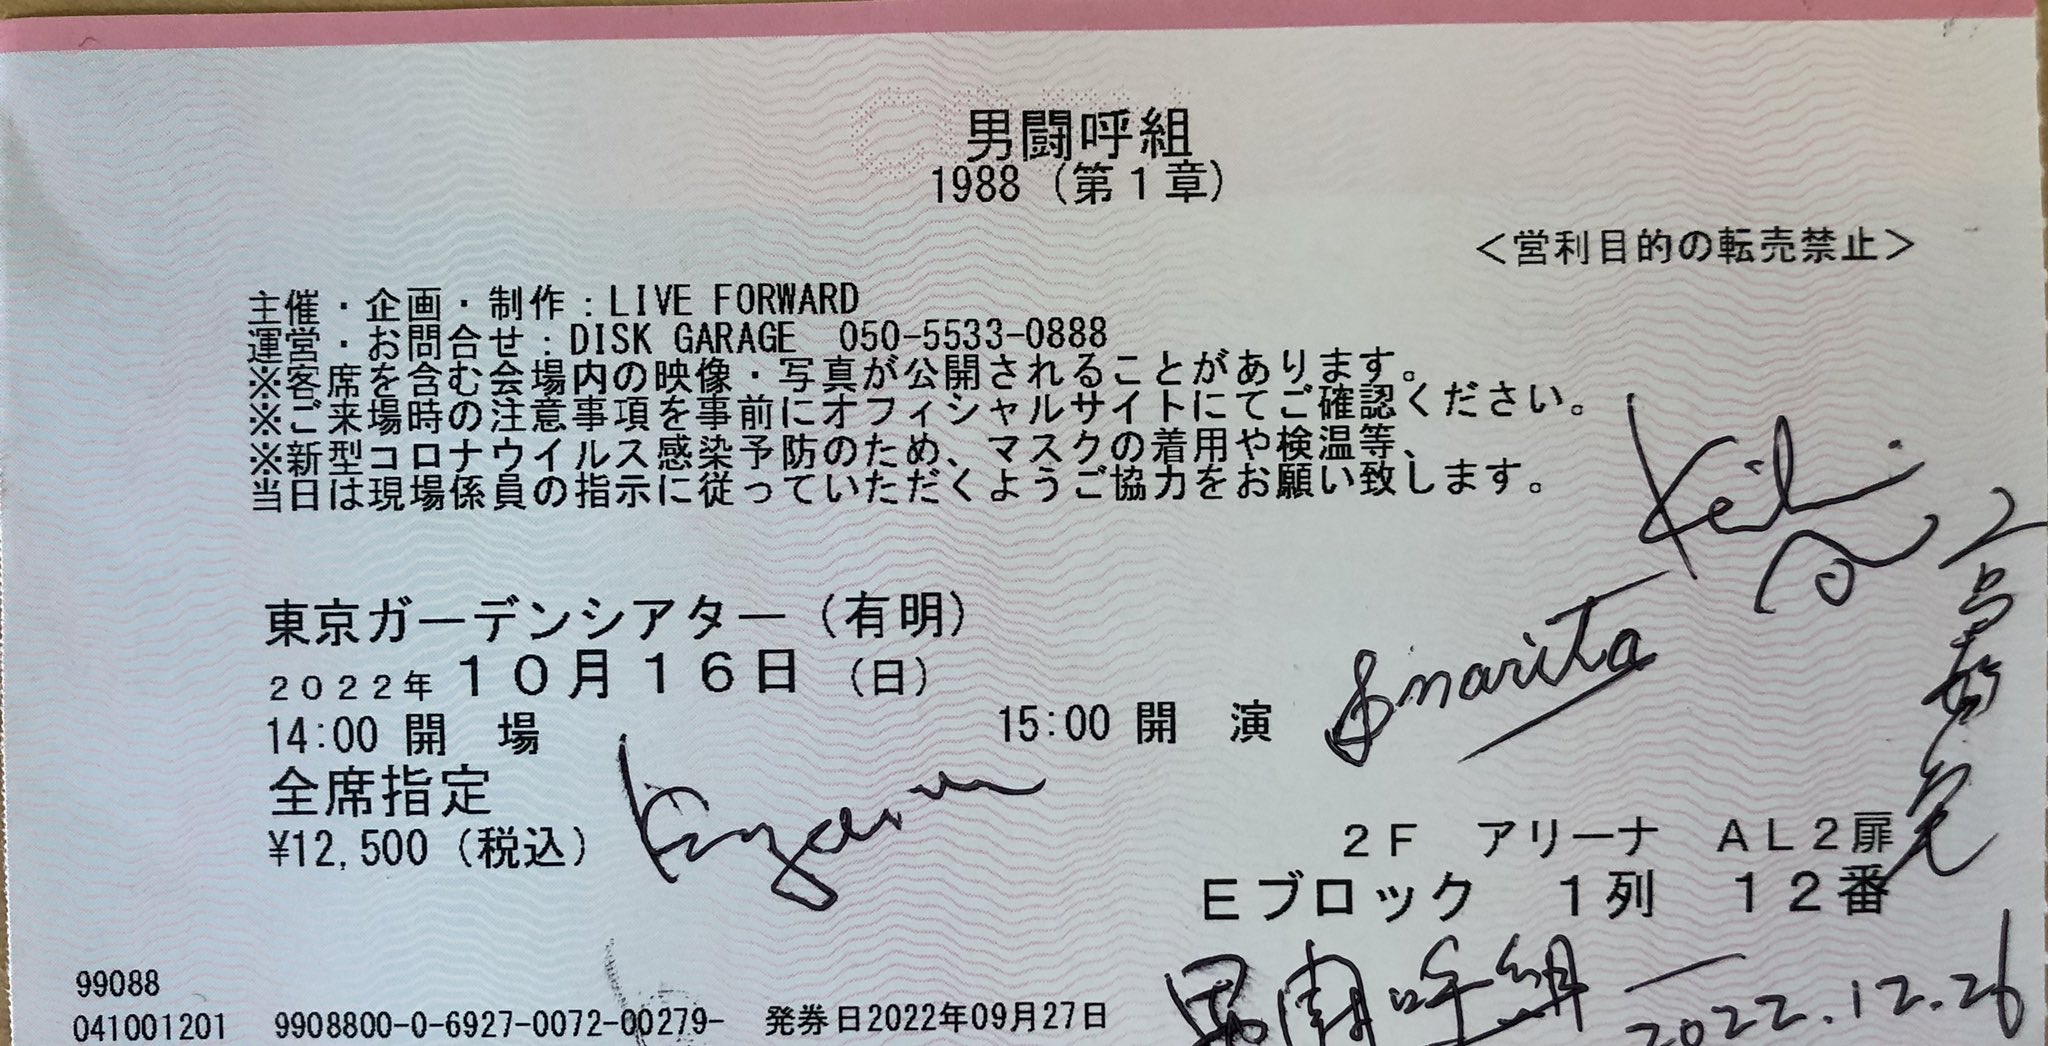 男闘呼組
1988 (第1章)
＜営利目的の転売禁止＞
主催・企画・制作：LIVE FORWARD
運営・お問合せ：DISK GARAGE 050-5533-0888
※客席を含む会場内の映像・写真が公開されることがあります。
※ご来場時の注意事項を事前にオフィシャルサイトにてご確認ください。
※新型コロナウイルス感染予防のため、マスクの着用や検温等、
当日は現場係員の指示に従っていただくようご協力をお願い致します。
東京ガーデンシアター（有明）
2022年 10月16日 （日）
14:00 開 場 15:00 開 演
narita
全席指定
¥12,500（税込）
2F アリーナ AL2扉
Eブロック 1列 12番
男闘呼組
2022.12.26
99088
041001201 9908800-0-6927-0072-00279- 発券日2022年09月27日